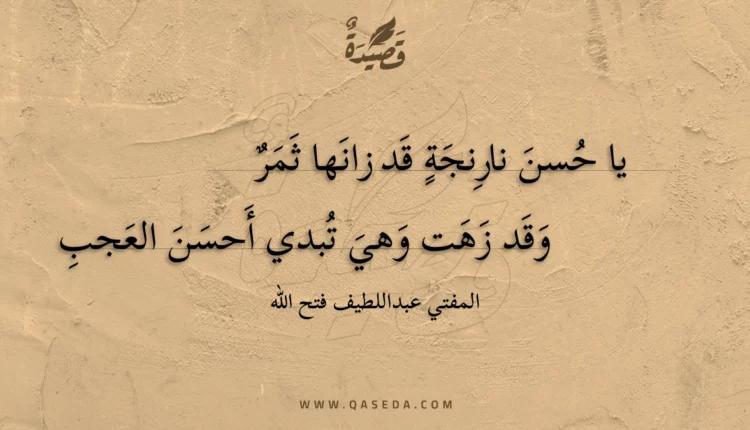 قَصِيْدَةٌ
يا حُسنَ نارِنجَةٍ قَد زانَها ثَمَرٌ
وَقَد زَهَت وَهيَ تُبدي أَحسَنَ العَجبِ
المفتي عبداللطيف فتح الله
WWW.QASEDA.COM